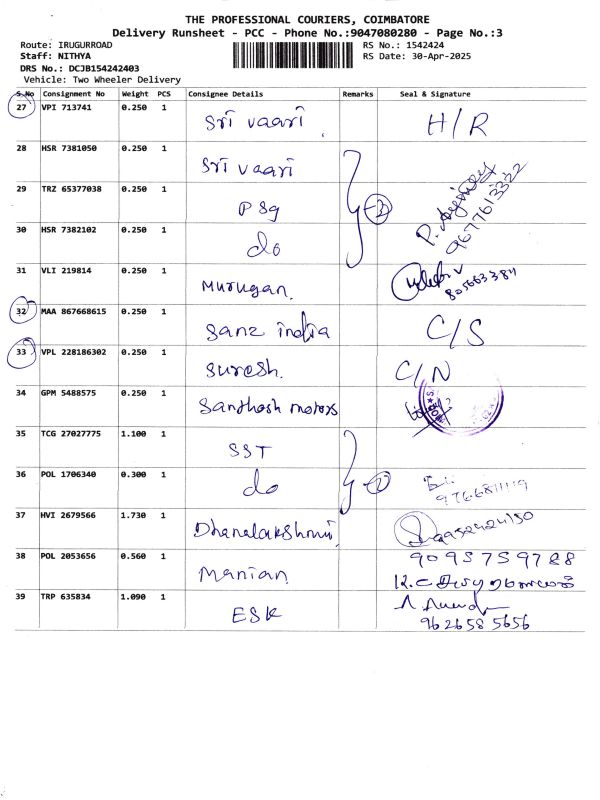 THE PROFESSIONAL COURIERS, COIMBATORE
Delivery Runsheet - PCC - Phone No.:9047080280 - Page No.:3
Route: IRUGURROAD RS No.: 1542424
Staff: NITHYA RS Date: 30-Apr-2025
DRS No.: DCJB154242403
Vehicle: Two Wheeler Delivery
S.No Consignment No Weight PCS Consignee Details Remarks Seal & Signature
27 VPI 713741 0.250 1 Sri vaari H/R
28 HSR 7381050 0.250 1 Sri vaari
29 TRZ 65377038 0.250 1 PSg
30 HSR 7382102 0.250 1 do
3
9677613322
31 VLI 219814 0.250 1 Murugan.
32 MAA 867668615 0.250 1 Sanz india C/S
33 VPL 228186302 0.250 1 Suresh. C/N
34 GPM 5488575 0.250 1 Santhosh motors
35 TCG 27027775 1.100 1 SST
36 POL 1706340 0.300 1 do
37 HVI 2679566 1.730 1 Dhanalakshmi
38 POL 2053656 0.560 1 Manian 9095759788
39 TRP 635834 1.090 1 ESK
9626585656